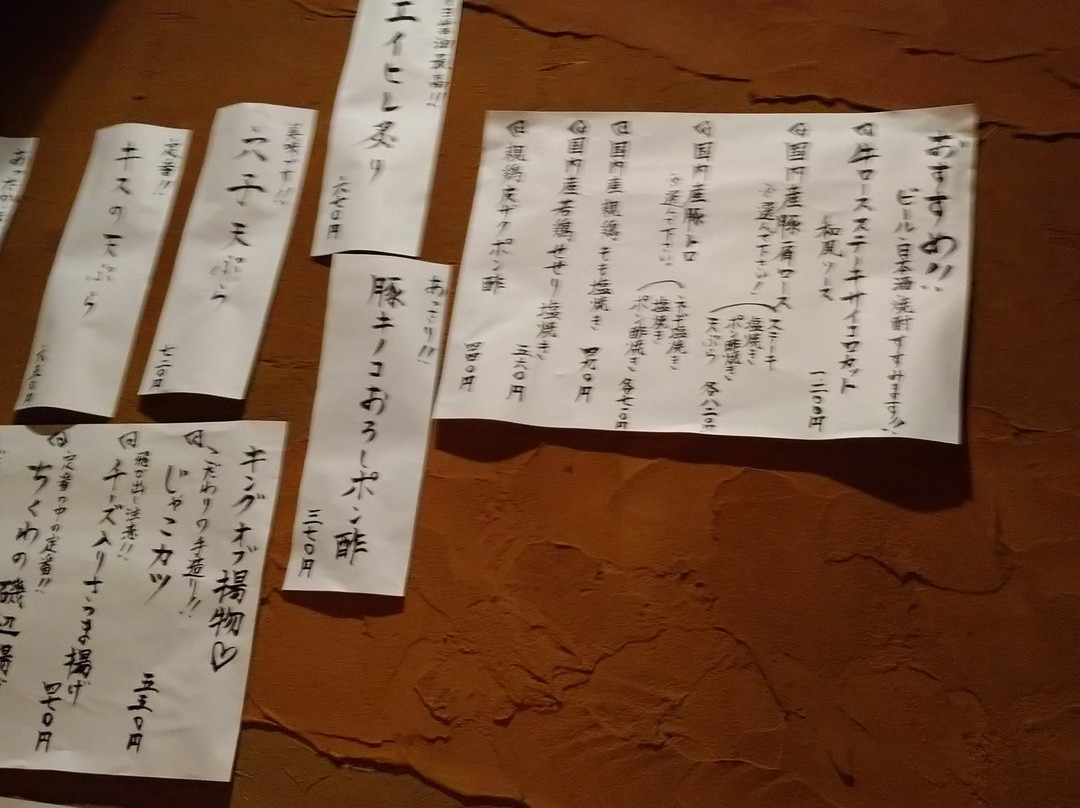 おすすめ!!
ビール、日本酒、焼酎すすみます!!
牛ロースステーキサイコロカット
和風ソース
一二〇〇円
国内産豚肩ロース
※選んで下さい!
ステーキ
塩焼き
ポン酢焼き
天ぷら
各八二〇円
国内産豚トロ
※選んで下さい
ネギ塩焼き
塩焼き
ポン酢焼き
各七一〇円
国内産親鶏もも塩焼き
四九〇円
国内産若鶏せせり塩焼き
五六〇円
親鶏皮ザクポン酢
四四〇円
最高!!
エイヒレ炙り
六七〇円
あっさり!!
豚キノコおろしポン酢
三七〇円
美味です!!
穴子天ぷら
七二〇円
定番!!
キスの天ぷら
キングオブ揚物♡
こだわりの手造り!!
じゃこカツ
五五〇円
飛び出し注意!!
チーズ入りさつま揚げ
定番の中の定番!!
ちくわの磯辺揚げ
四七〇円